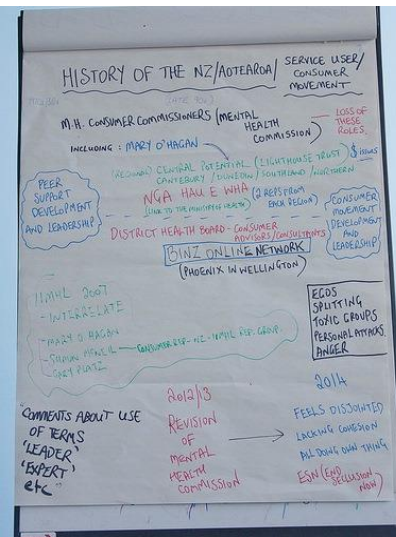 HISTORY OF THE NZ/AOTEAROA/
SERVICE USER/
CONSUMER
MOVEMENT
M.H. CONSUMER COMMISSIONERS (MENTAL
HEALTH
COMMISSION)
LOSS OF
THESE
ROLES.
INCLUDING : MARY O'HAGAN
(REGIONS) CENTRAL POTENTIAL (LIGHTHOUSE TRUST)
CANTEBURY / DUNEDIN / SOUTHLAND / NORTHERN
$ ISSUES
NGA HAU E WHA (2 REPS FROM
EACH REGION)
(LINK TO THE MINISTRY OF HEALTH)
PEER
SUPPORT
DEVELOPMENT
AND LEADERSHIP
CONSUMER
MOVEMENT
DEVELOPMENT
AND
LEADERSHIP
DISTRICT HEALTH BOARD - CONSUMER
ADVISORS/CONSULTANTS
BINZ ONLINE NETWORK
(PHOENIX IN WELLINGTON)
IIMHL 2007
- INTERRELATE
- MARY O HAGAN
- CONSUMER REP - NZ - IIMHL REP. GROUP.
- GARY PLATZ
EGOS
SPLITTING
TOXIC GROUPS
PERSONAL ATTACKS
ANGER
"COMMENTS ABOUT USE
OF TERMS
'LEADER'
'EXPERT'
etc"
2012/13
REVISION
OF
MENTAL
HEALTH
COMMISSION
2014
FEELS DISJOINTED
LACKING COHESION
ALL DOING OWN THING
ESN (END
SECLUSION
NOW)